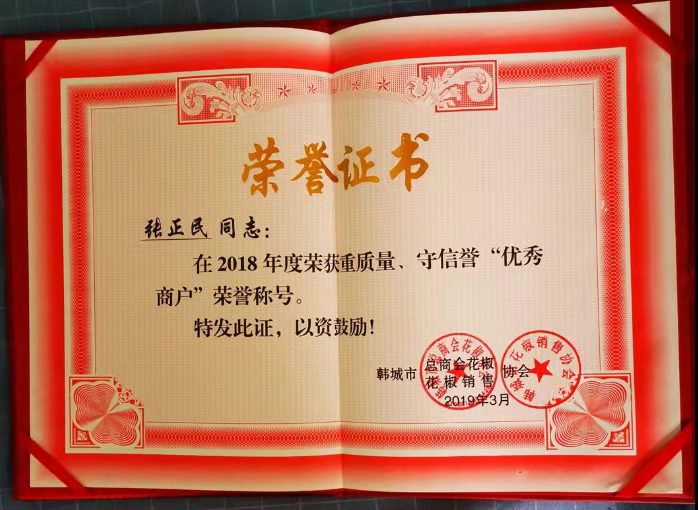 荣誉证书
张正民 同志：
在2018年度荣获重质量、守信誉“优秀
商户”荣誉称号。
特发此证，以资鼓励！
韩城市 总商会花椒 协会
花椒销售
2019年3月
韩城市总商会花椒协会
韩城市花椒销售协会